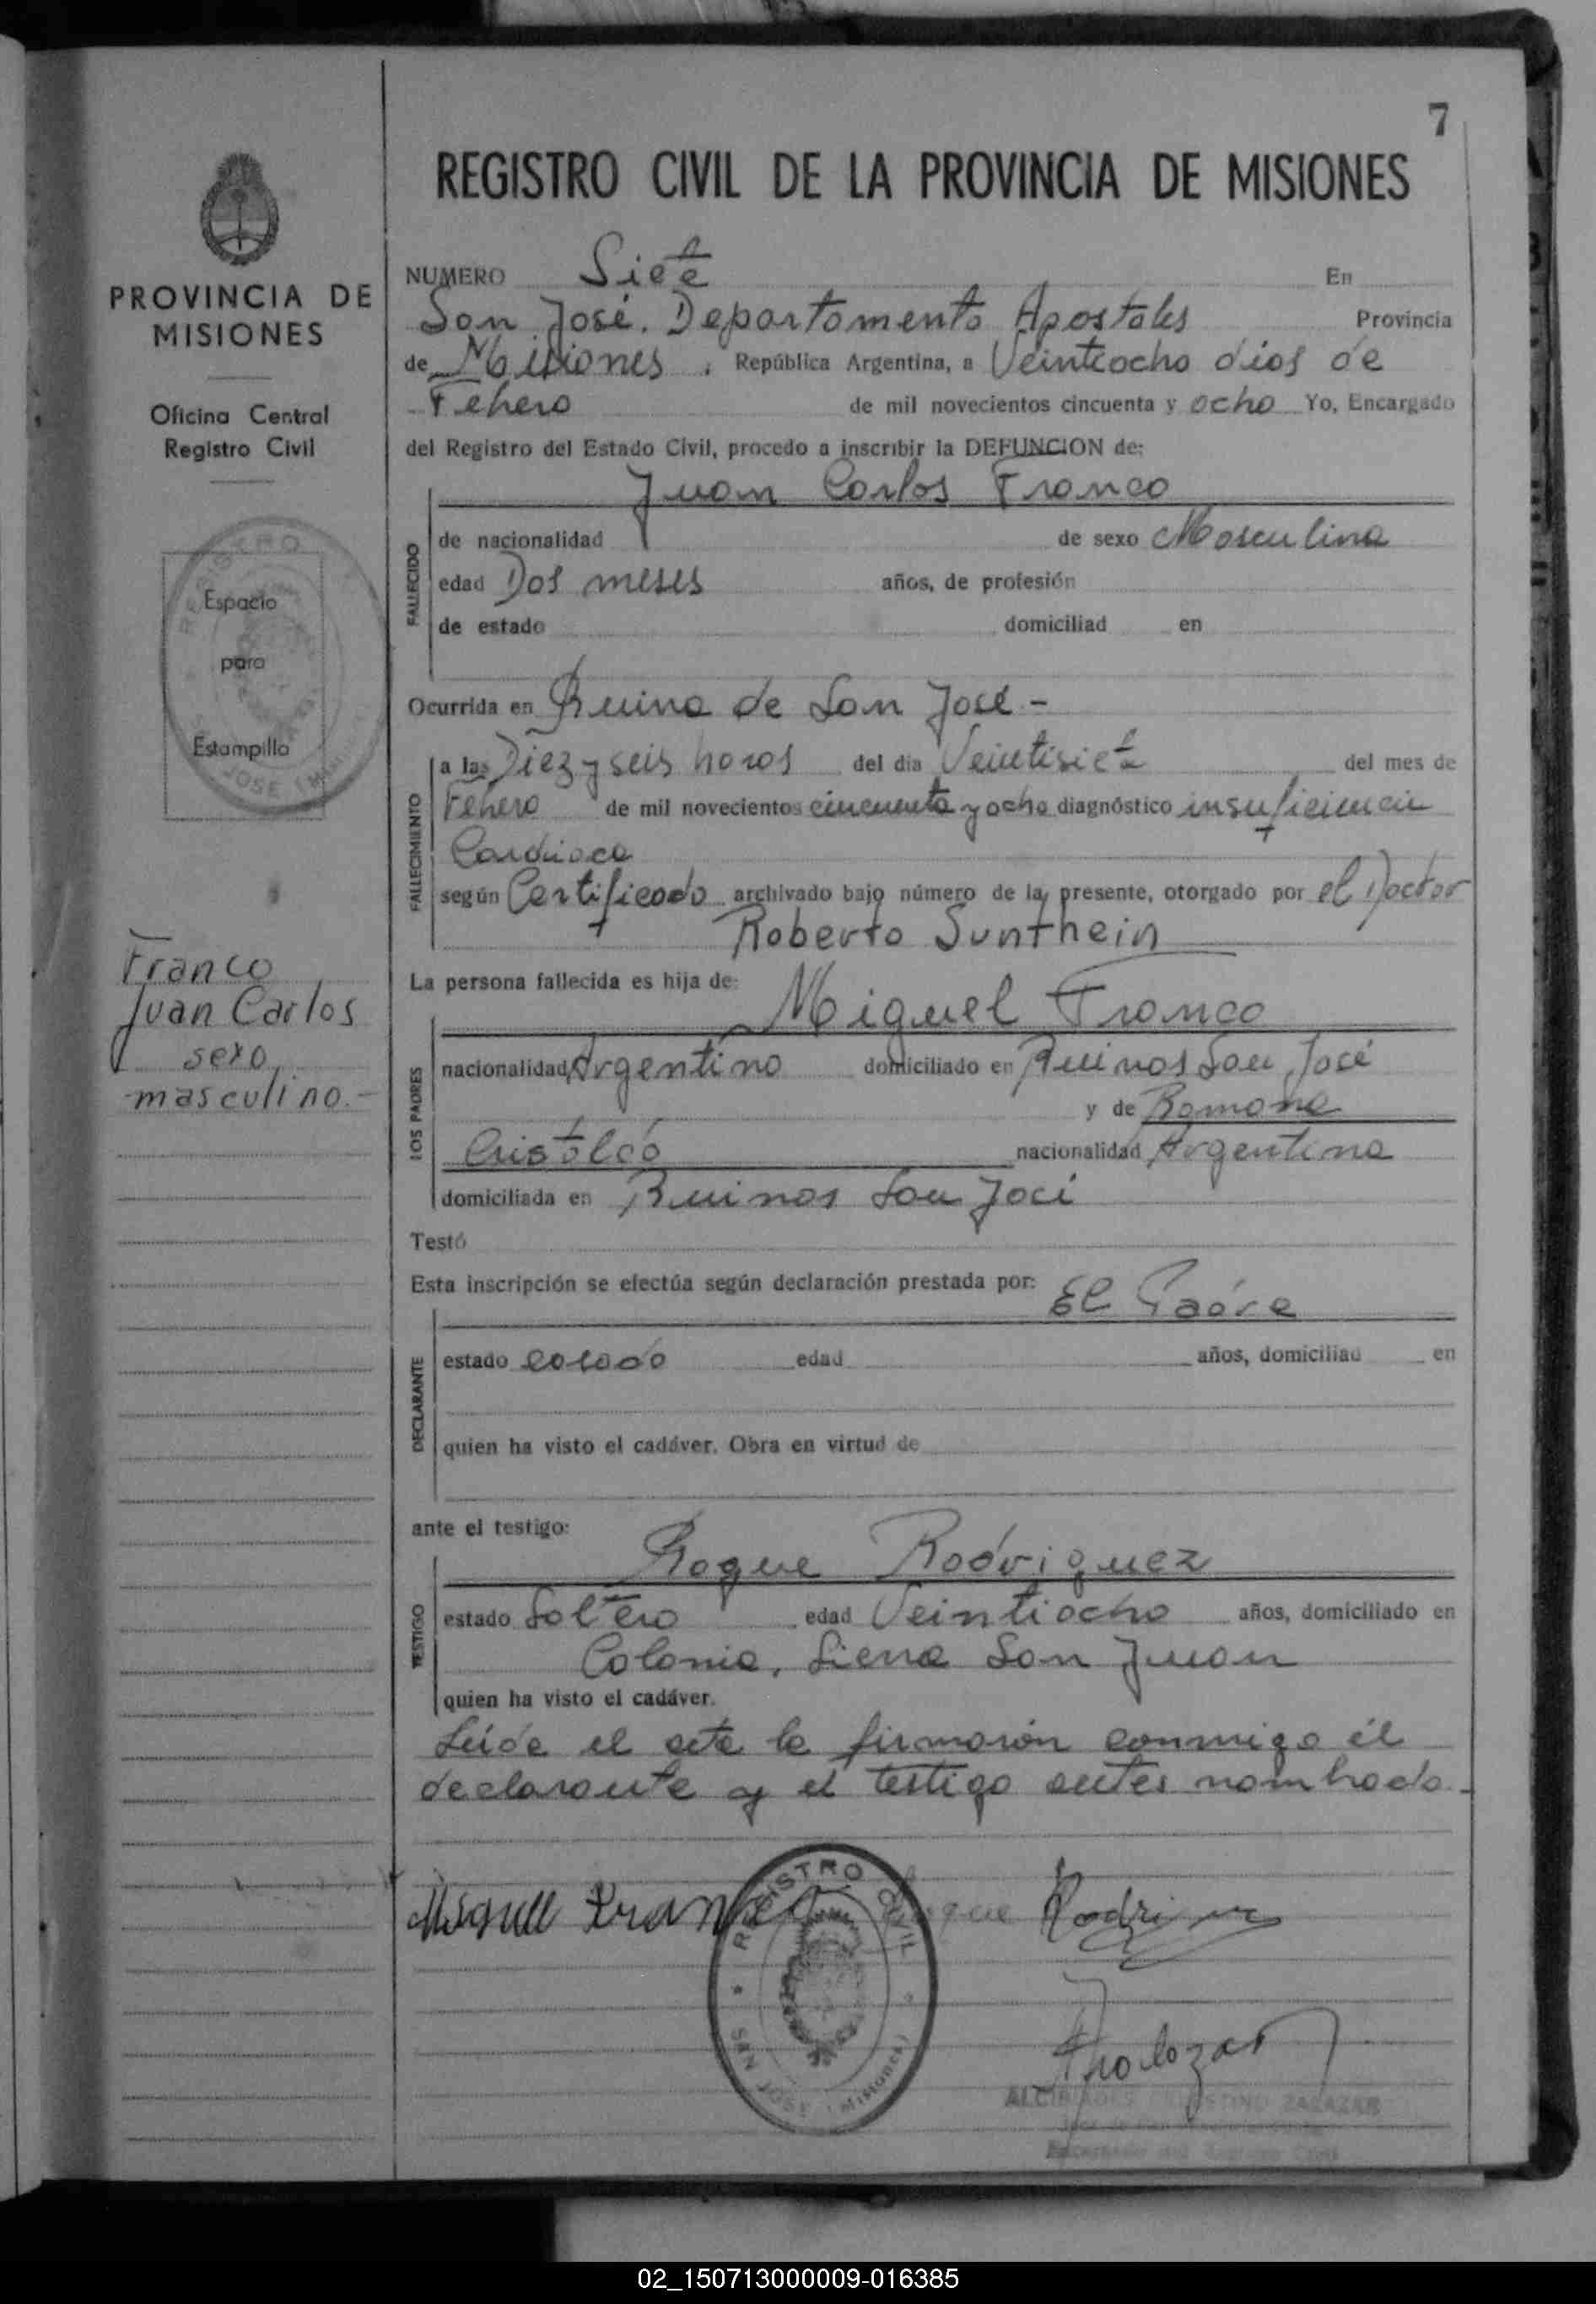 7
REGISTRO CIVIL DE LA PROVINCIA DE MISIONES
PROVINCIA DE
MISIONES
Oficina Central
Registro Civil
REGISTRO
Espacio
para
Estampilla
JOSE (MISIONES)
Franco
Juan Carlos
sexo
masculino.-
NUMERO Siete En
San José. Departamento Apostoles Provincia
de Misiones, República Argentina, a Veintiocho dias de
Febrero de mil novecientos cincuenta y ocho Yo, Encargado
del Registro del Estado Civil, procedo a inscribir la DEFUNCION de:
Juan Carlos Franco
FALLECIDO
de nacionalidad de sexo Masculino
edad Dos meses años, de profesión
de estado domiciliad en
Ocurrida en Ruina de San José -
FALLECIMIENTO
a las Diez y seis horas del día Veintisiete del mes de
Febrero de mil novecientos cincuenta y ocho diagnóstico insuficiencia
Cardiaca
según Certificado archivado bajo número de la presente, otorgado por el Doctor
Roberto Sunthein
La persona fallecida es hija de: Miguel Franco
LOS PADRES
nacionalidad Argentino domiciliado en Ruinas San José
y de Ramona
nacionalidad Argentina
domiciliada en Ruinas San José
Testó
Esta inscripción se efectúa según declaración prestada por: El Padre
DECLARANTE
estado casado edad años, domiciliad en
quien ha visto el cadáver. Obra en virtud de
ante el testigo:
Roque Rodriguez
TESTIGO
estado Soltero edad Veintiocho años, domiciliado en
Colonia, Sierra San Juan
quien ha visto el cadáver.
Leida el acta la firmarón conmigo él
declarante y el testigo antes nombrado.-
Miguel Franco Roque Rodriguez
REGISTRO CIVIL
SAN JOSE (Misiones)
ALCIBIADES CELESTINO ZALAZAR
Encargado del Registro Civil
02_150713000009-016385